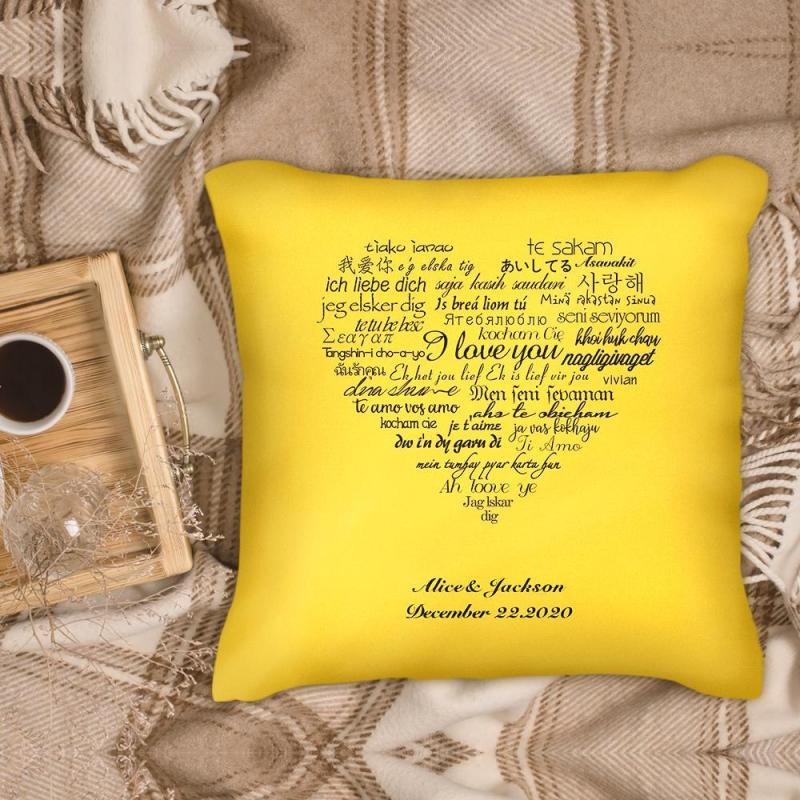 tiako ianao te sakam
我爱你 e'g elska tig あいしてる Asavakit
ich liebe dich saja kasih saudari 사랑해
jeg elsker dig Is breá liom tú Minä rakastan sinua
te tu be besé Ятебялюблю seni seviyorum
Σεαγαπ kocham Cię khoi huk chau
Tangshin-i cho-a-yo I love you nagligivaget
ฉันรักคุณ Ek het jou lief Ek is lief vir jou vivian
Men seni sevaman
te amo vos amo ahs te obicham
kocham cie je t'aime ja vas kokhaju
dw i'n dy garu di Ti Amo
mein tumhay pyar karta hun
Ah loove ye
Jag lskar
dig
Alice & Jackson
December 22.2020